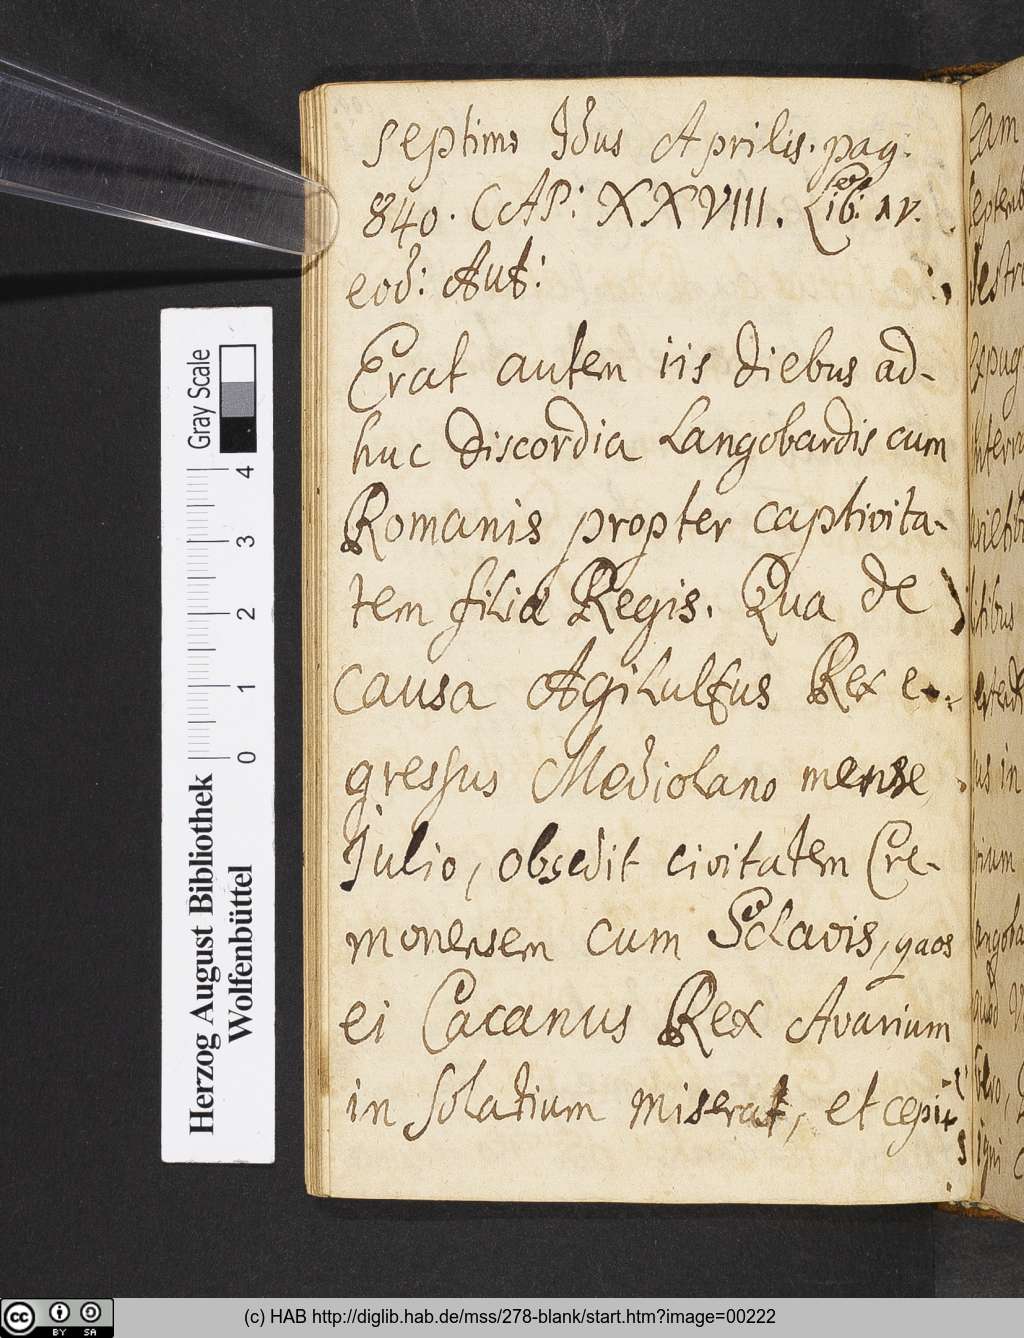 septimo Idus Aprilis. pag:
840. CAP: XXVIII. Lib: IV.
eod: Aut:
Erat autem iis diebus ad-
huc discordia Langobardis cum
Romanis propter captivita-
tem filiæ Regis. Qua de
causa Agilulfus Rex e-
gressus Mediolano mense
Julio, obsedit civitatem Cre-
monensem cum Sclavis, quos
ei Cacanus Rex Avarium
in solatium miserat, et cepit
eam
septemb
destru
expug
interro
us in
rium
angoba
quod
igni
Gray Scale
4
3
2
1
0
Herzog August Bibliothek
Wolfenbüttel
cc BY SA
(c) HAB http://diglib.hab.de/mss/278-blank/start.htm?image=00222